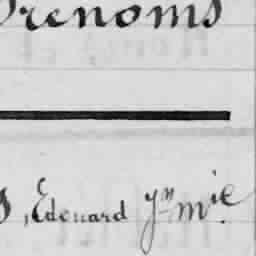 Prénoms
, Edouard yn mie